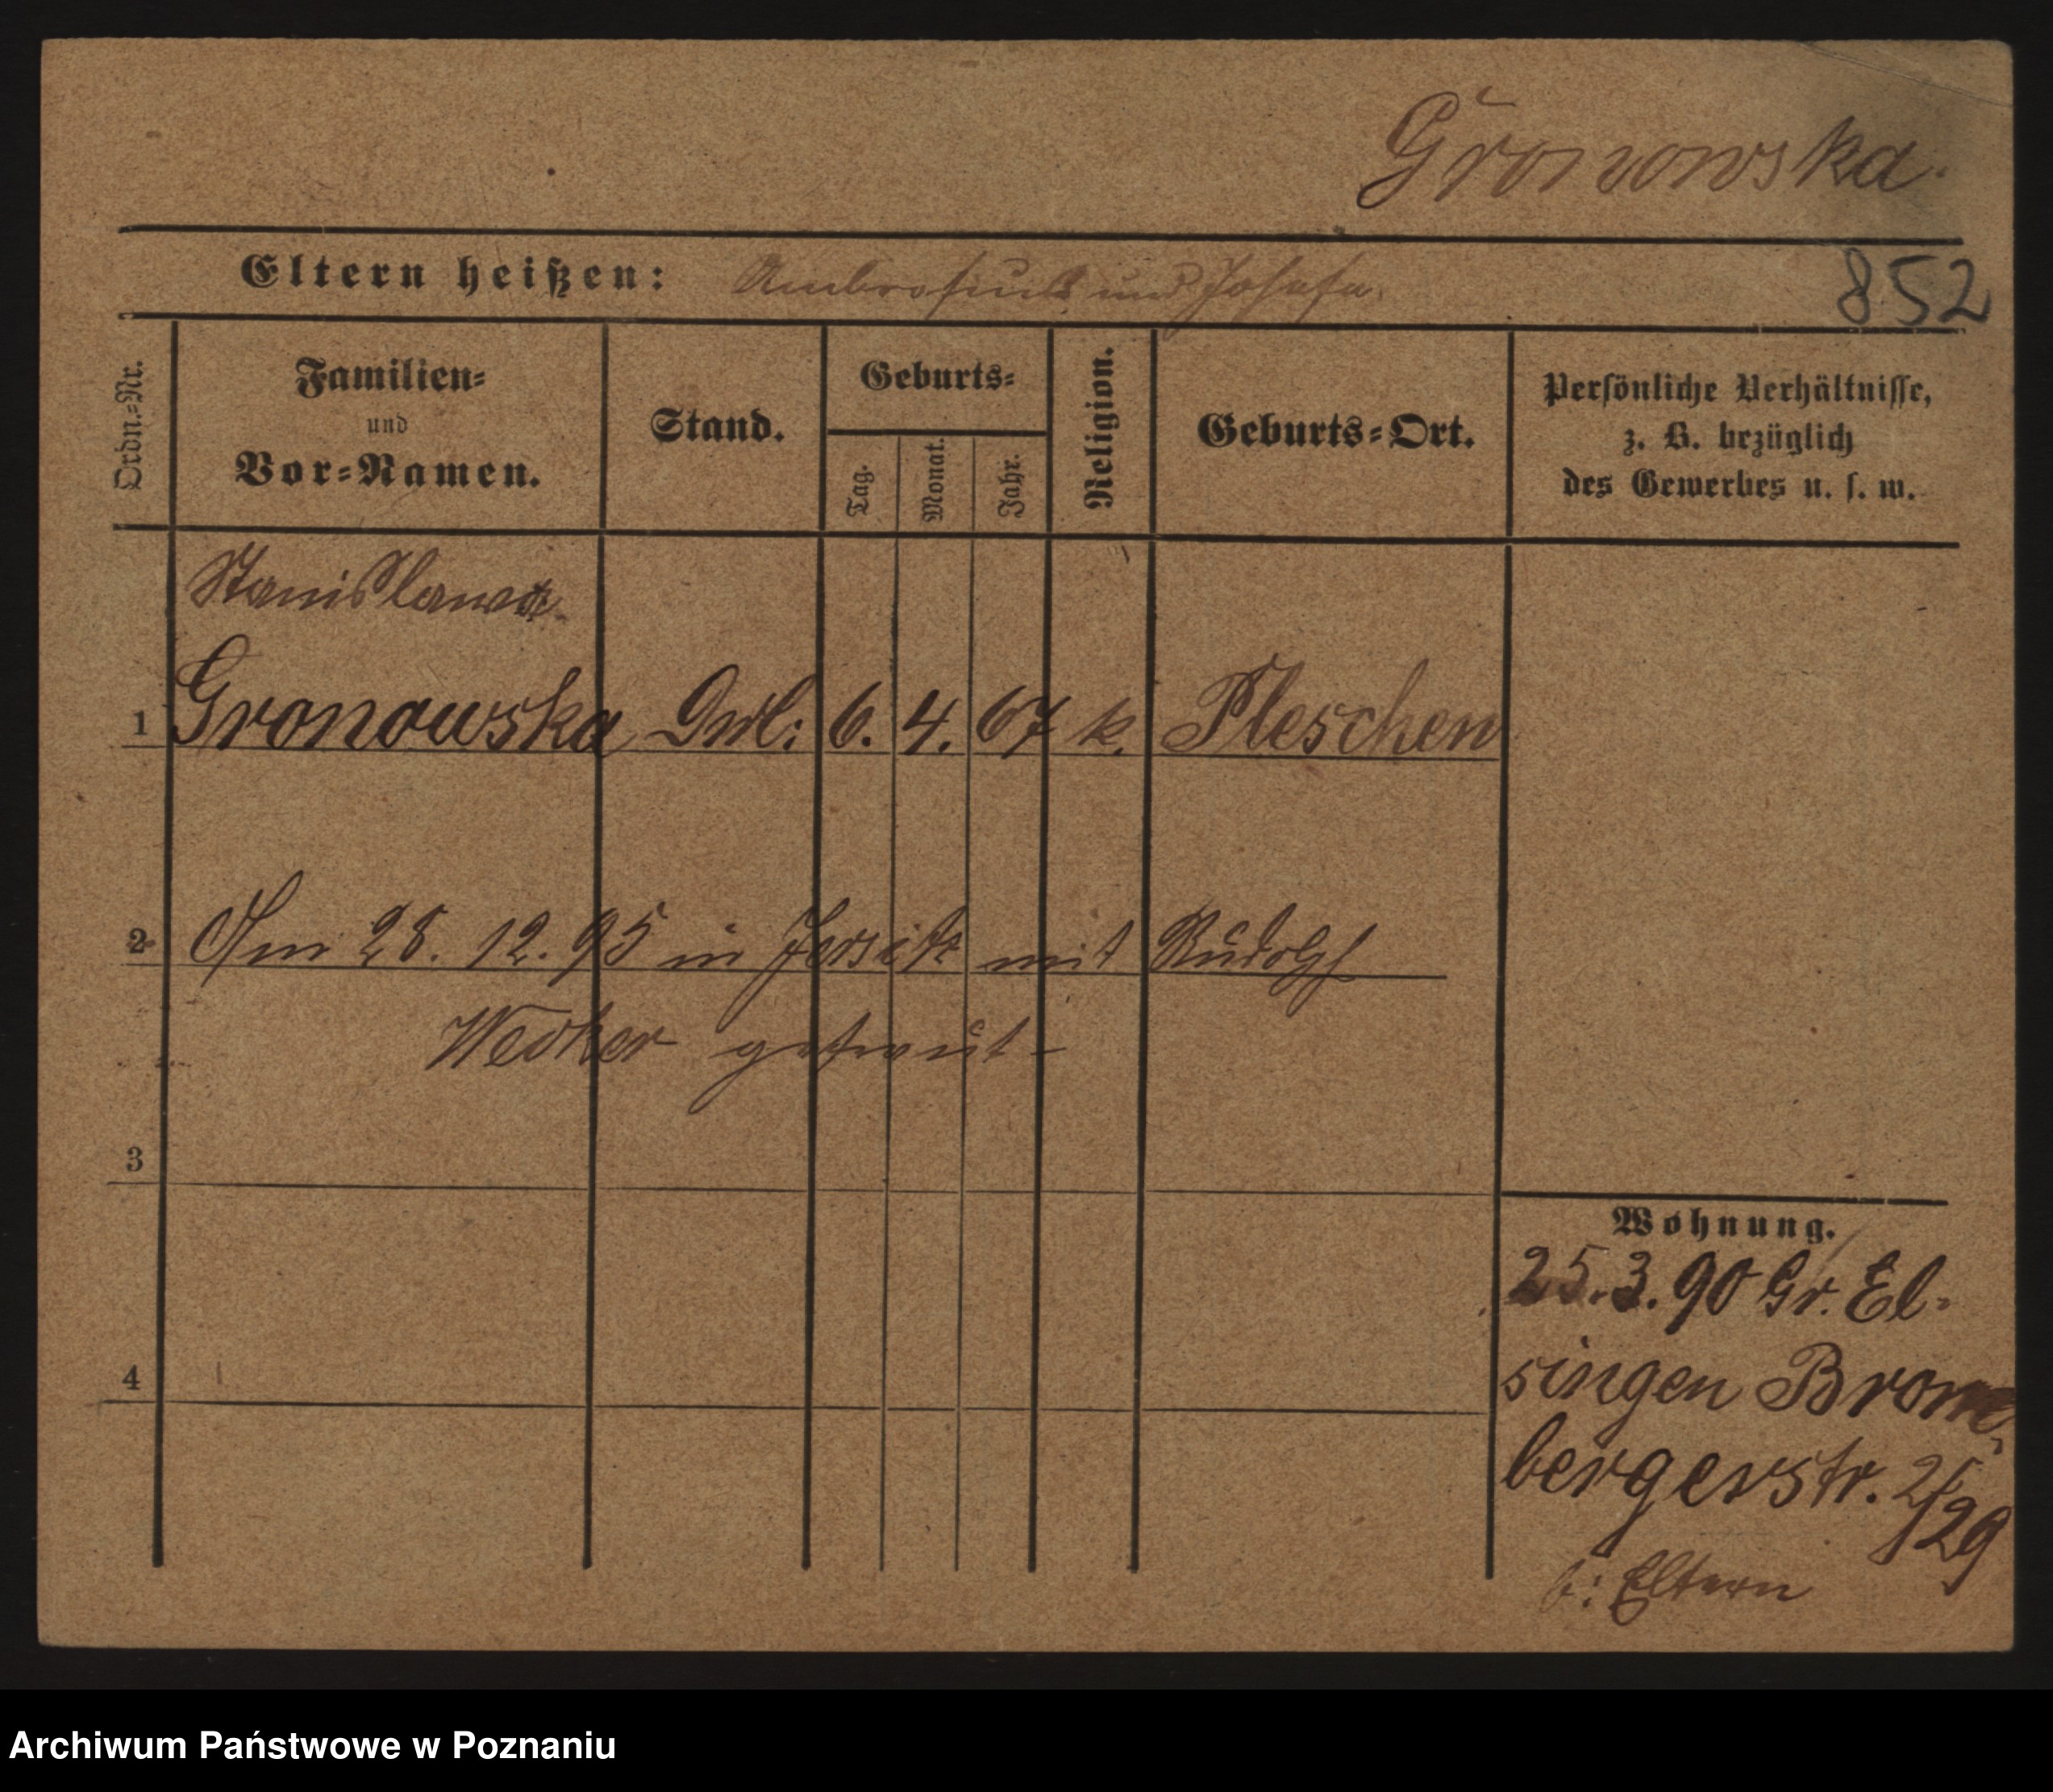 Gronowska.
Eltern heißen: Ambrosius und Josefa.
852
Ordn.-Nr.
Familien-
und
Vor-Namen.
Stand.
Geburts-
Tag.
Monat.
Jahr.
Religion.
Geburts-Ort.
Persönliche Verhältnisse,
z. B. bezüglich
des Gewerbes u. s. w.
Stanislawa
1 Gronowska 6. 4. 67 k. Pleschen
2 Am 28. 12. 95 in Jersitz mit Rudolf
Wecker getraut
3
4
Wohnung.
25.3.90 Gr. El-
singen Brom-
bergerstr. 2/29
b: Eltern
Archiwum Państwowe w Poznaniu